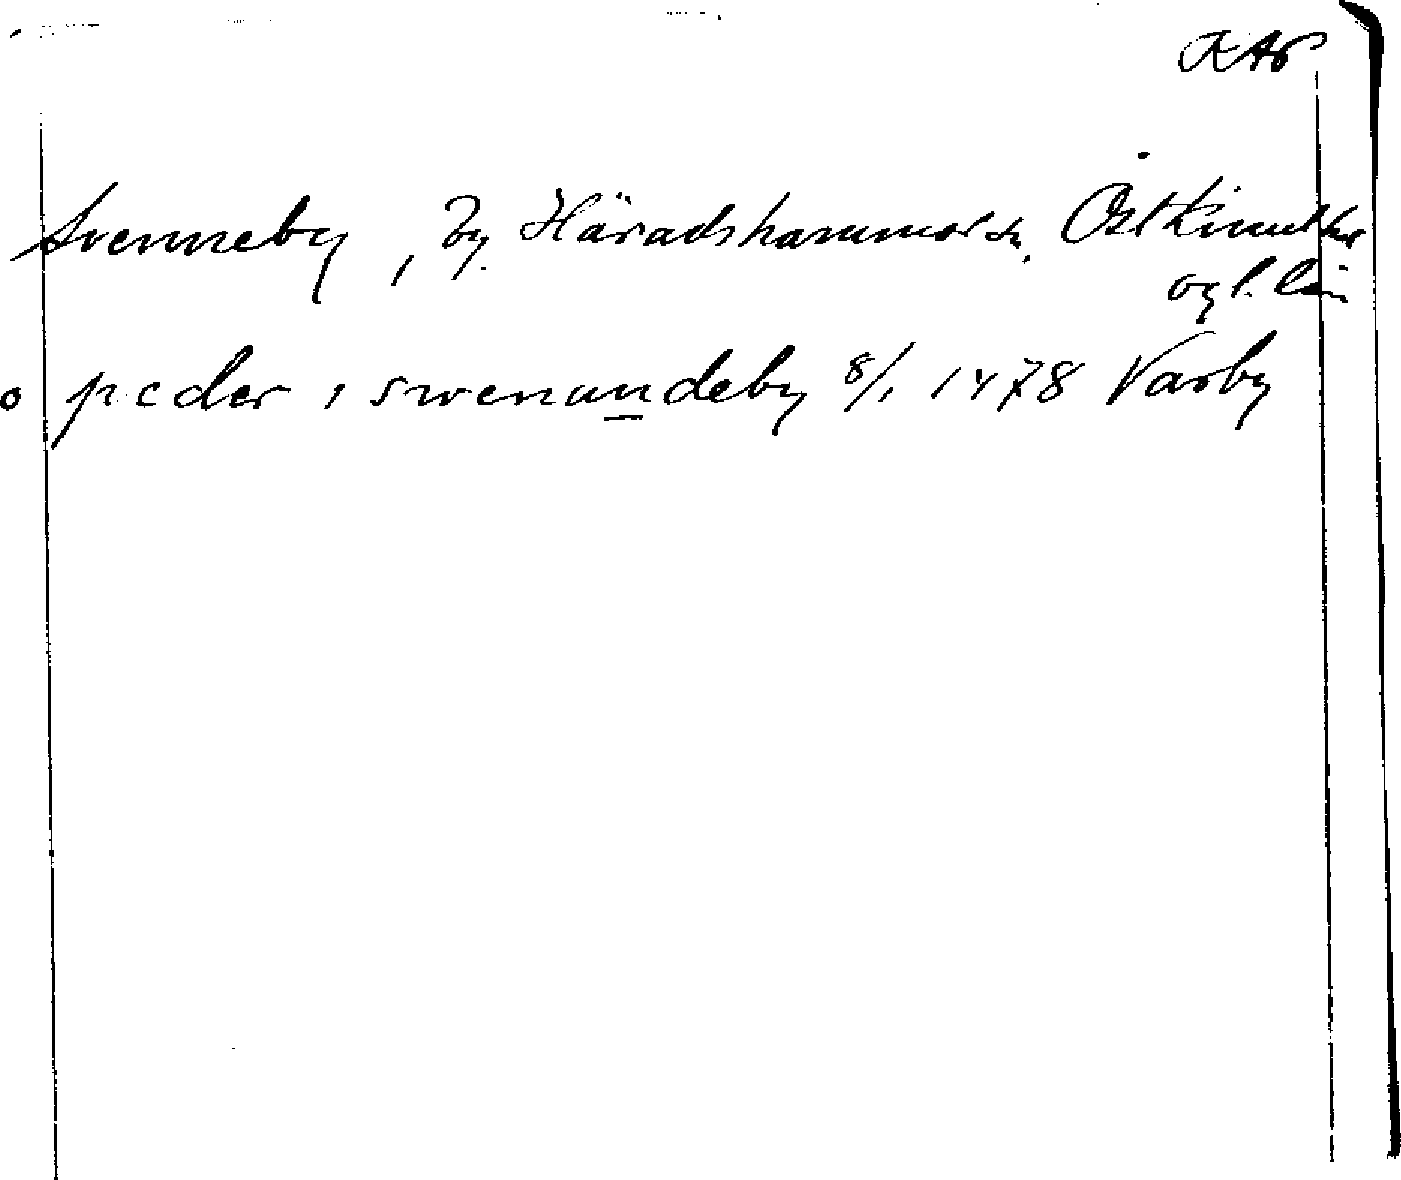 Svenneby, By. Häradshammar sn. Östkinds hd
ögl. län
o peder i swenundeby 8/1 1478 Varby